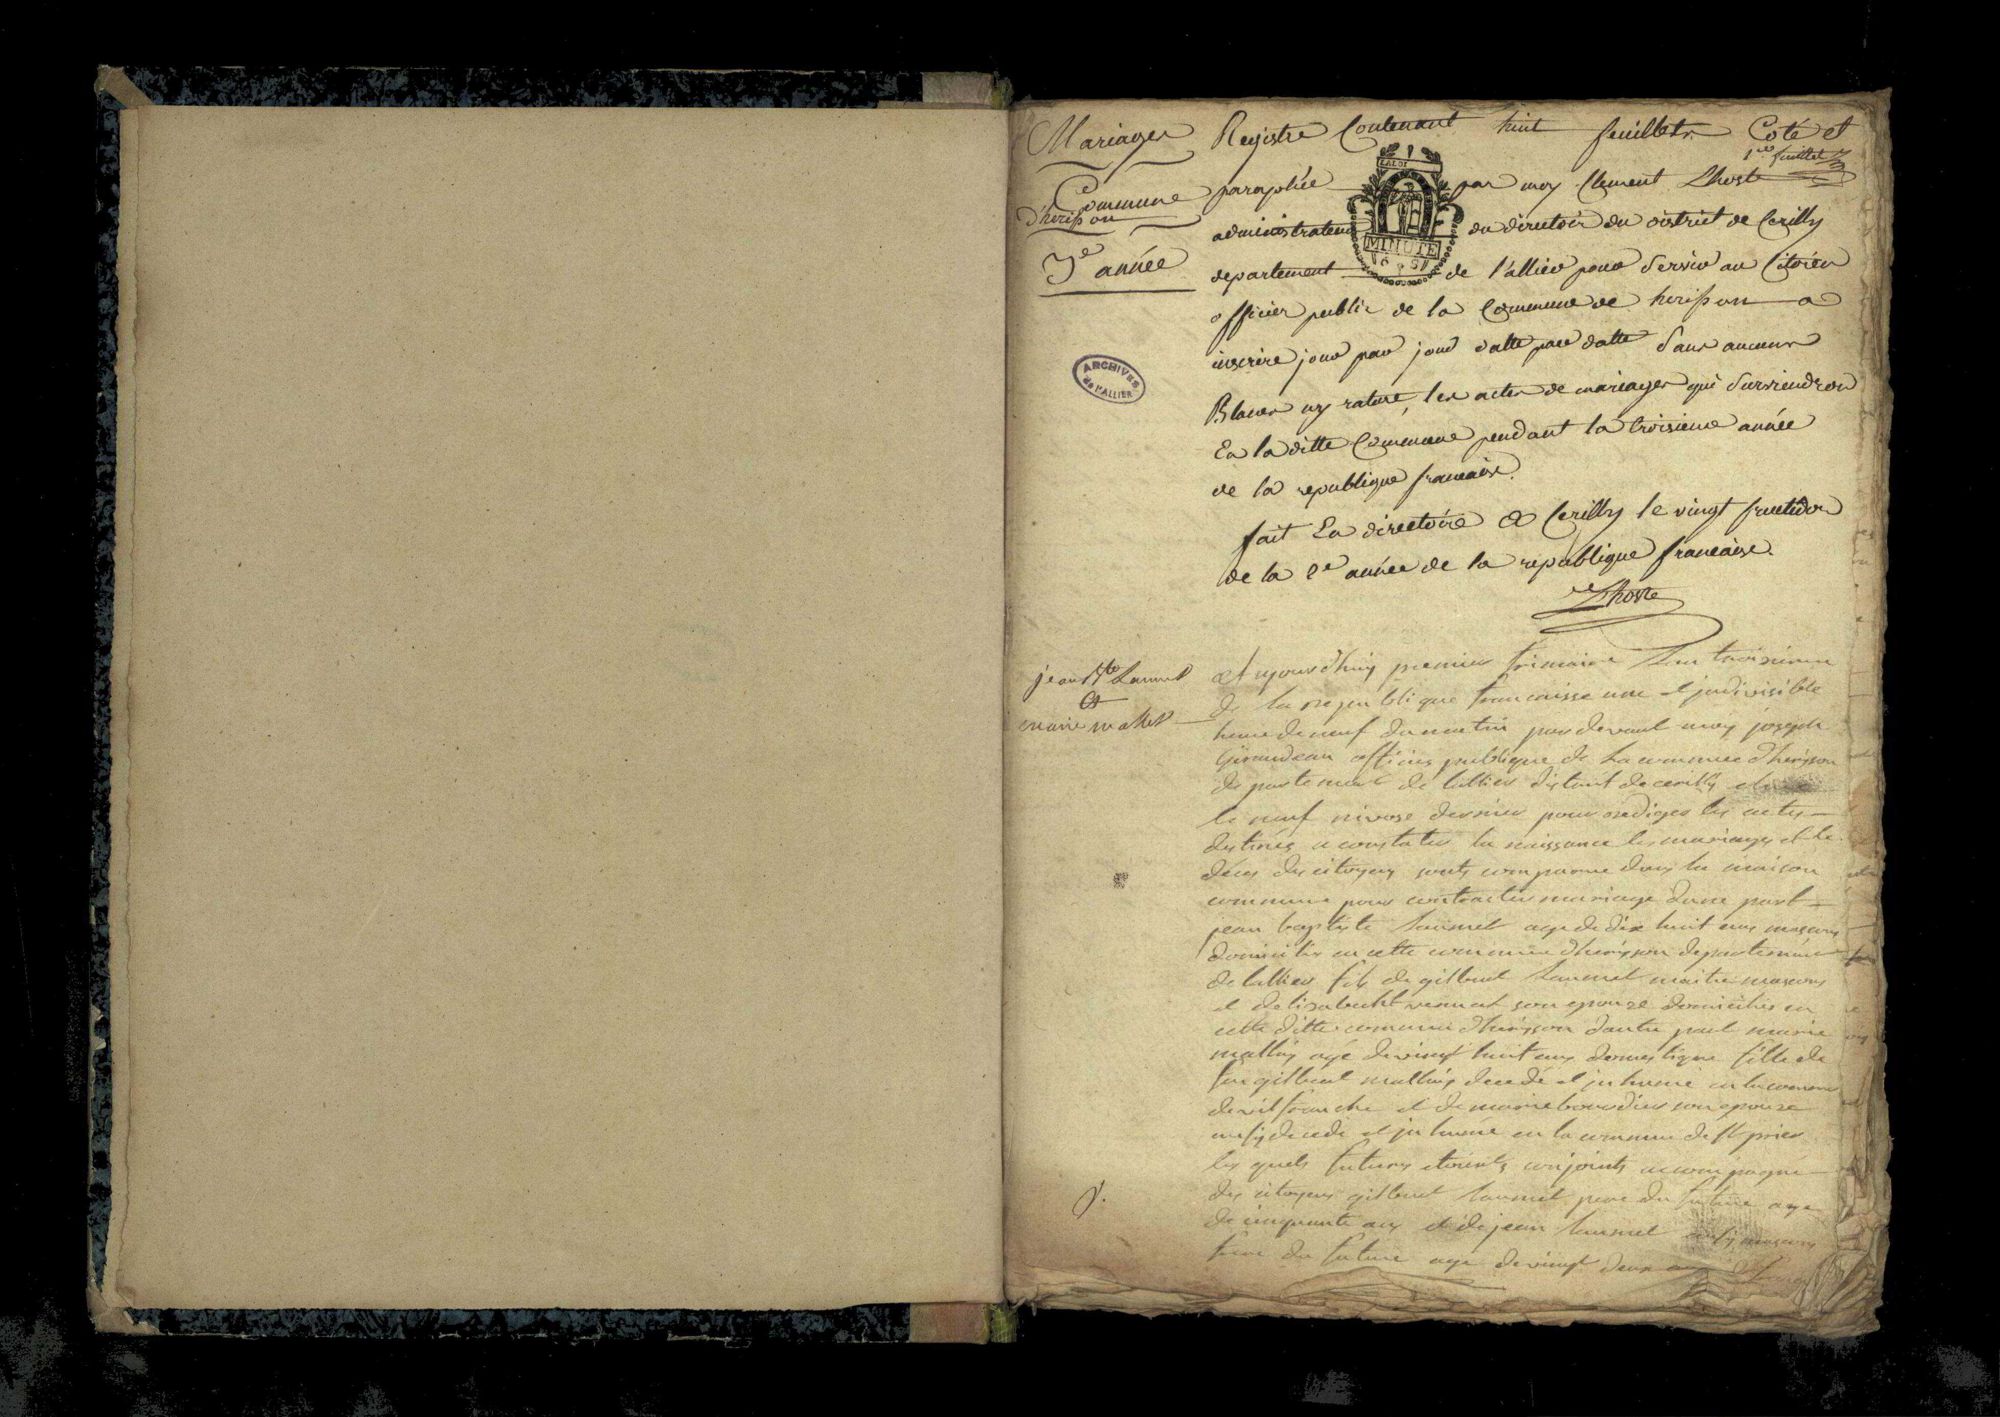 Mariages
Commune
d'herisson
3e année
Registre Contenant huit feuillets Coté et
1er feuillet
paraphée par moy Clement Lhoste
administrateur du directoir du district de Cerilly
departement de l'allier pour Servir au Citoien
officier public de la Commune de herisson a
inscrire jour par jour datte par datte Sans aucuns
Blancs ny rature, les actes de mariages qui Surviendron
En la ditte Commune pendant la troisieme année
de la republique francaise.
fait En directoire a Cerilly le vingt fructidor
de la 2e année de la republique francaise.
Lhoste
LA LOI
MINUTE
ARCHIVES
de L'ALLIER
jean Bte Laumet
et
marie mallet
Aujourdhuy premier frimaire Lan troisieme
de la republique francaisse une et indivisible
heure de neuf du matin par devant moy joseph
Giraudeau officier publique de la commune d'herisson
departement de lallier distant de cerilly
le neuf nivose dernier pour rediger les actes
destinés a constater la naissance les mariages et le
déces des citoyens sont comparue dans la maison
commune pour contracter mariage dune part
jean baptiste Laumet age de dix huit ans maçons
domicilies en cette commune dherisson departement
de lallier fils de gilbert Laumet maitre maçons
et delisabecht son epouze domicilies en
cette ditte commune dherisson dautre part marie
mallet agé de vingt huit ans domestique fille de
feu gilbert mallet decedé et jnhumé en la commune
de vilfranche et de marie bourdier son epouze
aussy decede et jnhume en la commune de st priex
les quels futures conjoints accompagné
des citoyens gilbert Laumet pere du future age
de cinquante ans et de jean Laumet maçons
frere du future age de vingt deux ans